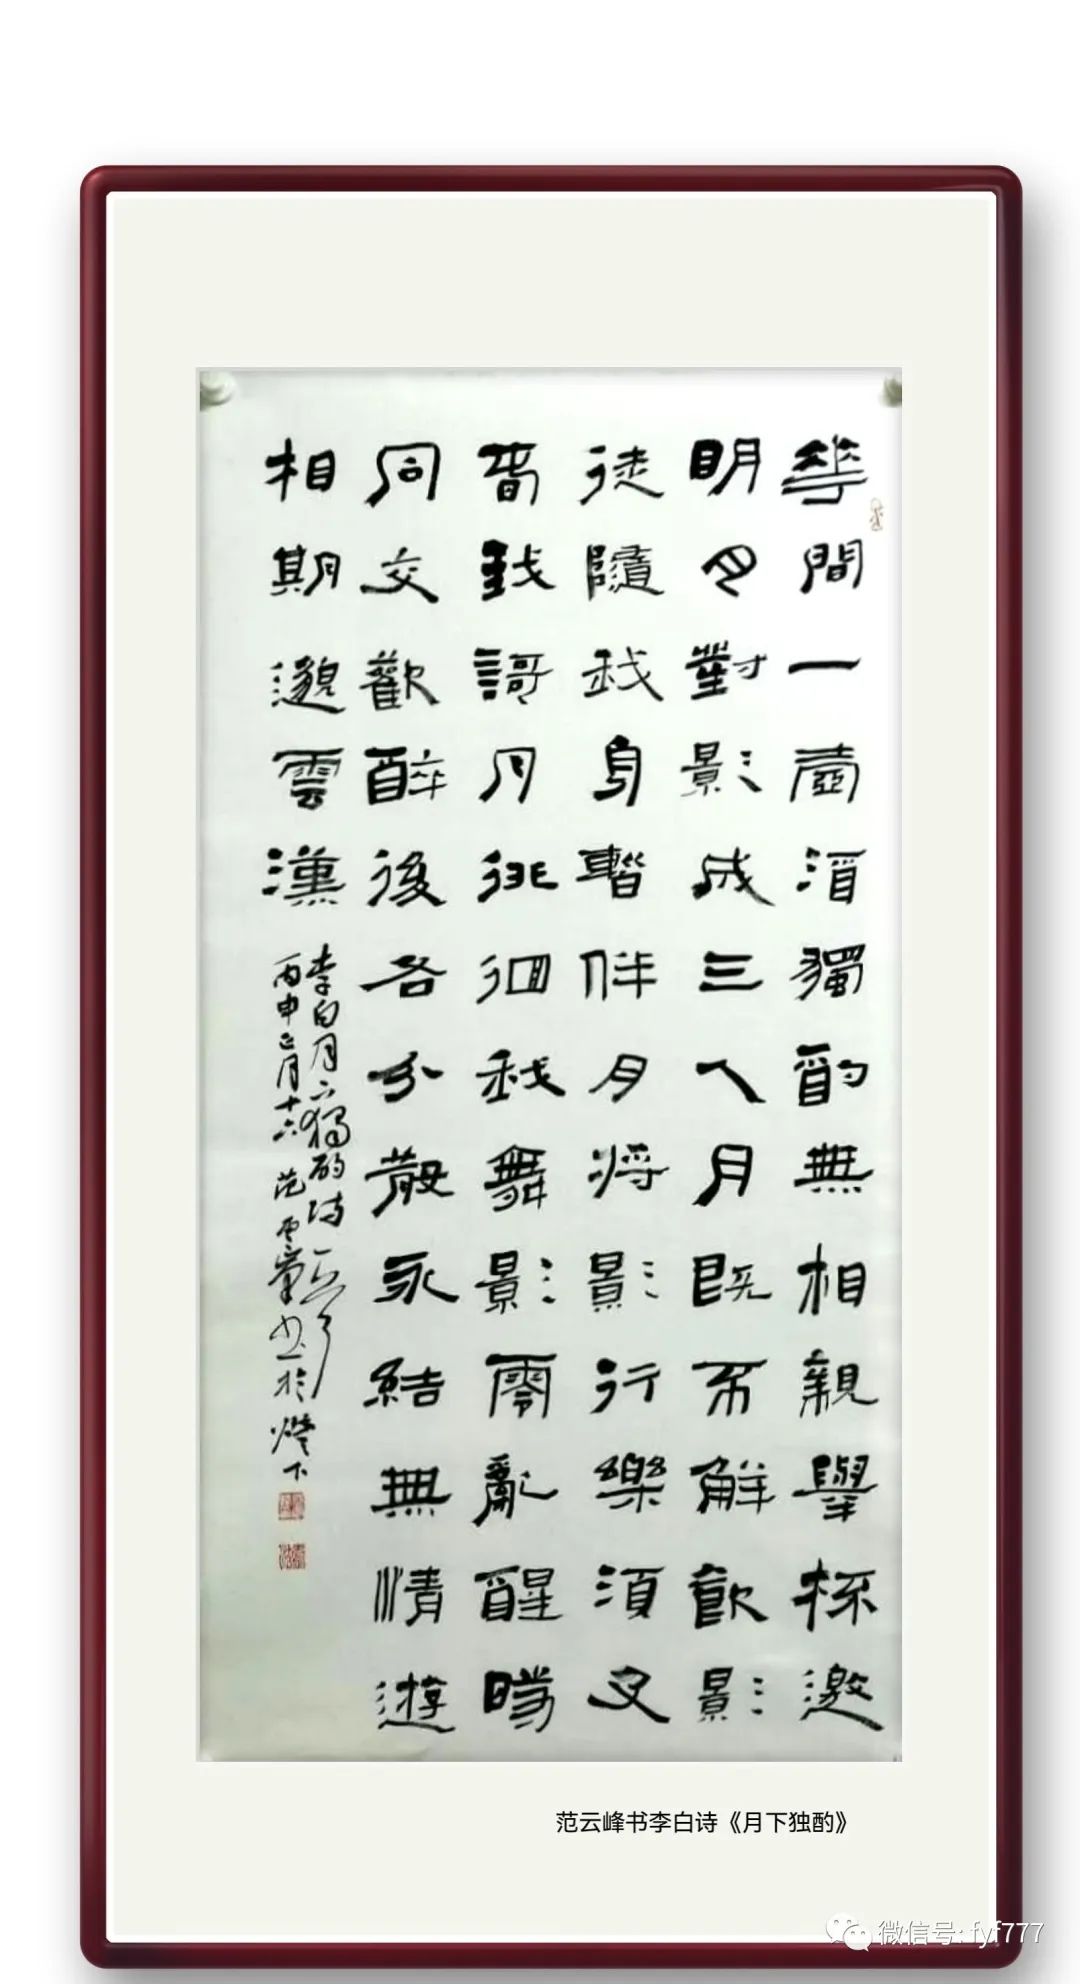 華間一壺酒獨酌無相親舉杯邀
明月對影成三人月既不解飲影
徒隨我身暫伴月將影行樂須及
春我謌月徘徊我舞影零亂醒時
同交歡醉後各分散永結無情遊
相期邈雲漢
李白月下獨酌詩一首
丙申正月十六 范雲峯書於燈下
范云峰书李白诗《月下独酌》
微信号: fyf777